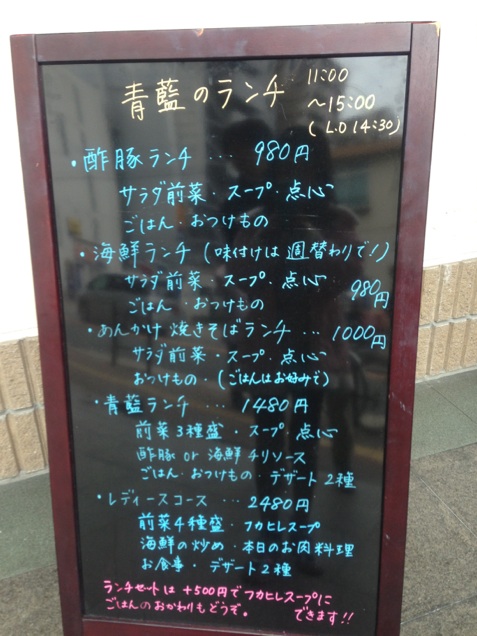 青藍のランチ 11:00
～15:00
(L.O 14:30)
・酢豚ランチ … 980円
サラダ前菜・スープ・点心
ごはん・おつけもの
・海鮮ランチ (味付けは週替わりで!)
サラダ前菜・スープ・点心 980円
ごはん・おつけもの
・あんかけ焼きそばランチ … 1000円
サラダ前菜・スープ・点心
おつけもの・(ごはんはお好みで)
・青藍ランチ … 1480円
前菜3種盛・スープ 点心
酢豚 or 海鮮チリソース
ごはん・おつけもの デザート2種
・レディースコース … 2480円
前菜4種盛・フカヒレスープ
海鮮の炒め・本日のお肉料理
お食事・デザート2種
ランチセットは+500円でフカヒレスープに
ごはんのおかわりもどうぞ。 できます!!